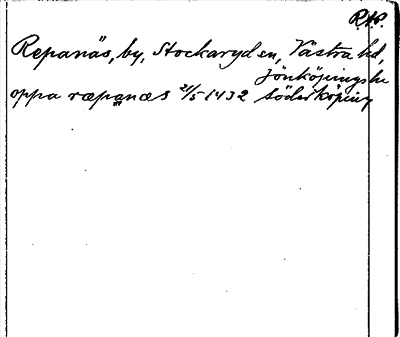 RAP.
Repanäs, by, Stockaryd sn, Västra hd,
Jönköpings län
oppa ræpanæs 21/5 1432 Söderköping